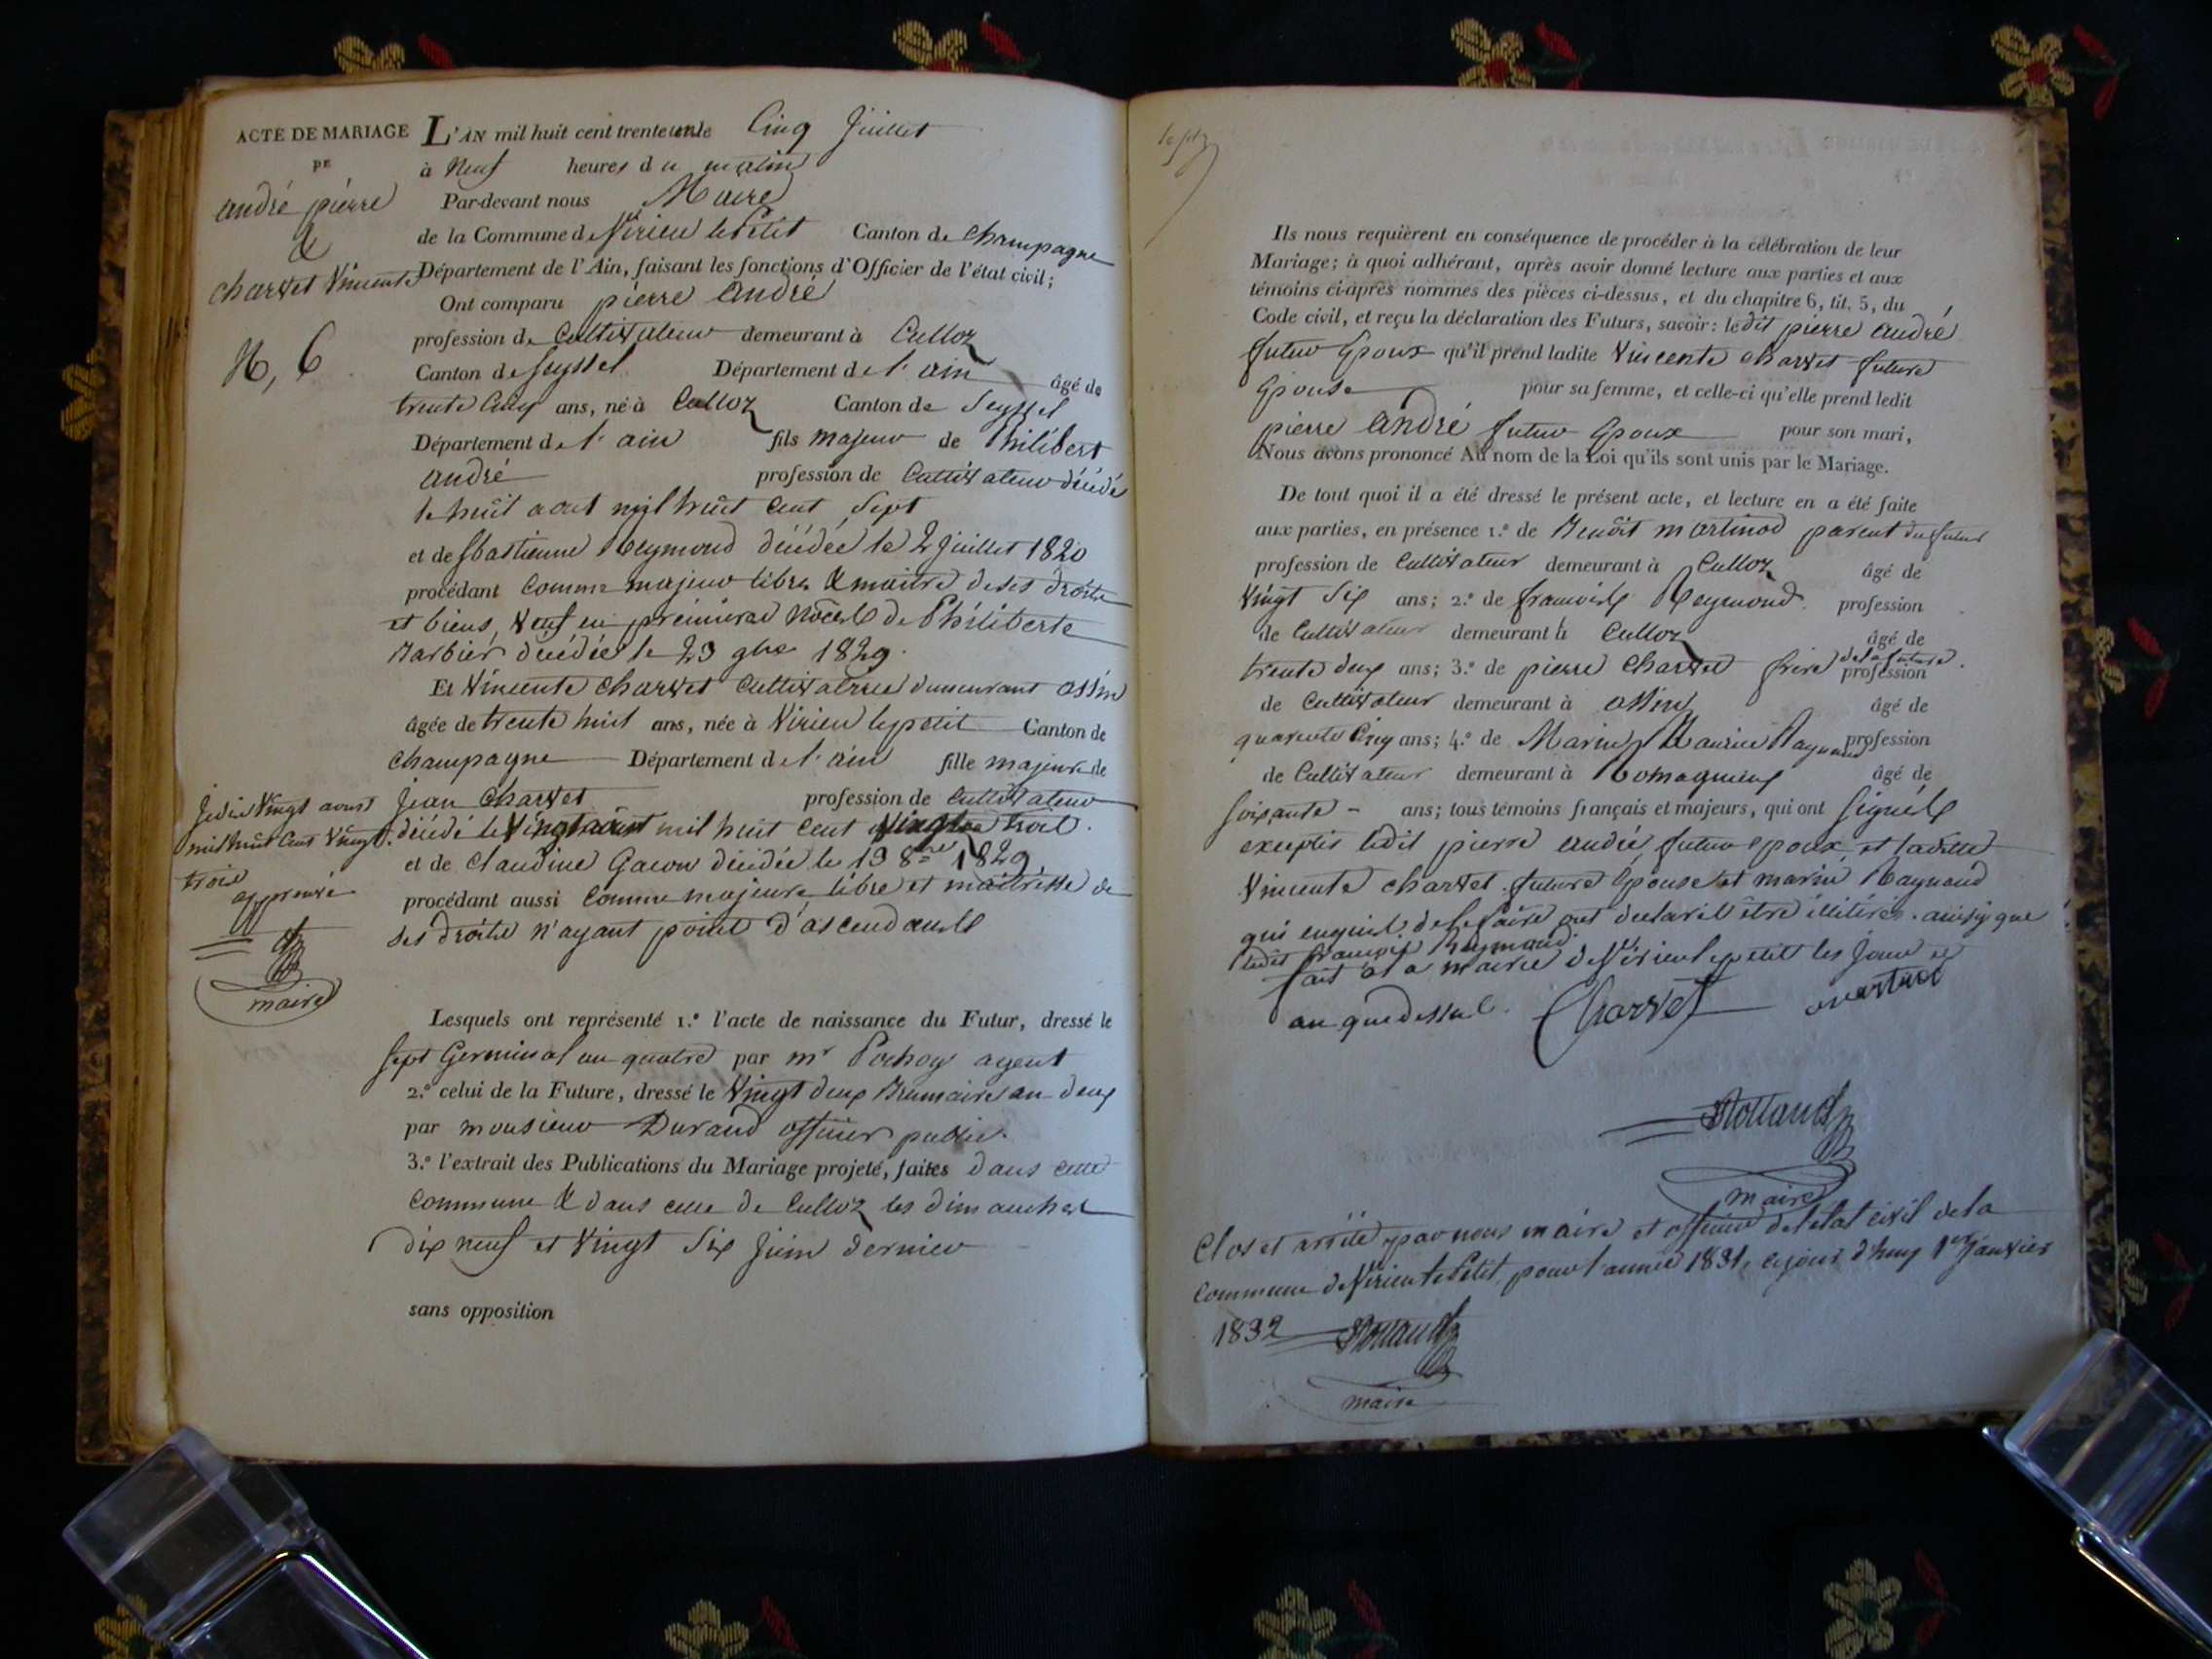 ACTE DE MARIAGE
DE
andré pierre
&
charvet Vincente
N, 6
L'AN mil huit cent trente un le Cinq Juillet
à Neuf heures du matin
Par-devant nous Maire
de la Commune de Virieu le Petit Canton de Champagne
Département de l'Ain, faisant les fonctions d'Officier de l'état civil;
Ont comparu pierre andré
profession de Cultivateur demeurant à Culloz
Canton de Seyssel Département de l'ain âgé de
trente Cinq ans, né à Culloz Canton de Seyssel
Département de l'ain fils majeur de Philibert
andré profession de Cultivateur décédé
le huit aout mil huit cent Sept
et de Sbastienne Reymond décédée le 2 Juillet 1820
procédant Comme majeur libre & maitre de ses droits
et biens, Veuf en premieres Noces de Philiberte
Barbier décédée le 23 9bre 1829.
Et Vincente Charvet Cultivatrice demeurant assin
âgée de trente huit ans, née à Virieu le petit Canton de
Champagne Département de l'ain fille majeure de
Jean Charvet profession de Cultivateur
décédé le Vingt aoust mil huit cent Vingt trois.
et de Claudine Gacon décédée le 19 8bre 1829
procédant aussi Comme majeure libre et maitresse de
ses droits n'ayant point d'ascendants
Je dis Vingt aoust
mil huit Cent Vingt
trois
approuvé
maire
Lesquels ont représenté 1.º l'acte de naissance du Futur, dressé le
Sept Germinal an quatre par mr Pochoy agent
2.º celui de la Future, dressé le Vingt deux Brumaire an deux
par monsieur Durand officier public.
3.º l'extrait des Publications du Mariage projeté, faites dans cette
Commune & dans celle de Culloz les dimanches
dix neuf et Vingt Six Juin dernier
sans opposition
Ils nous requièrent en conséquence de procéder à la célébration de leur
Mariage; à quoi adhérant, après avoir donné lecture aux parties et aux
témoins ci-après nommés des pièces ci-dessus, et du chapitre 6, tit. 5, du
Code civil, et reçu la déclaration des Futurs, savoir: ledit pierre andré
futur Epoux qu'il prend ladite Vincente charvet future
Epouse pour sa femme, et celle-ci qu'elle prend ledit
pierre andré futur Epoux pour son mari,
Nous avons prononcé Au nom de la Loi qu'ils sont unis par le Mariage.
De tout quoi il a été dressé le présent acte, et lecture en a été faite
aux parties, en présence 1.º de Benoît martinod parent du futur
profession de Cultivateur demeurant à Culloz âgé de
Vingt Six ans; 2.º de francois Reymond profession
de Cultivateur demeurant à Culloz âgé de
trente deux ans; 3.º de pierre Charvet frère de la future. profession
de Cultivateur demeurant à assin âgé de
quarente Cinq ans; 4.º de Marin Maurice Raynaud profession
de Cultivateur demeurant à Romagnieu âgé de
Soixante - ans; tous témoins français et majeurs, qui ont Signés
exceptés ledit pierre andré, futur epoux et ladite
Vincente charvet future Epouse et marin Raynaud
qui enquis de le faire ont declarés être illitérés. ainsy que
ledit francois Reymond
fait a la mairie de Virieu le petit les Jour et
an que dessus. Charvet martinod
Rolland
maire
Clos et arrêté par nous maire et officier de l'état civil de la
Commune de Virieu le Petit, pour l'année 1831, ce jour d'huy 1er Janvier
1832 Rolland
maire